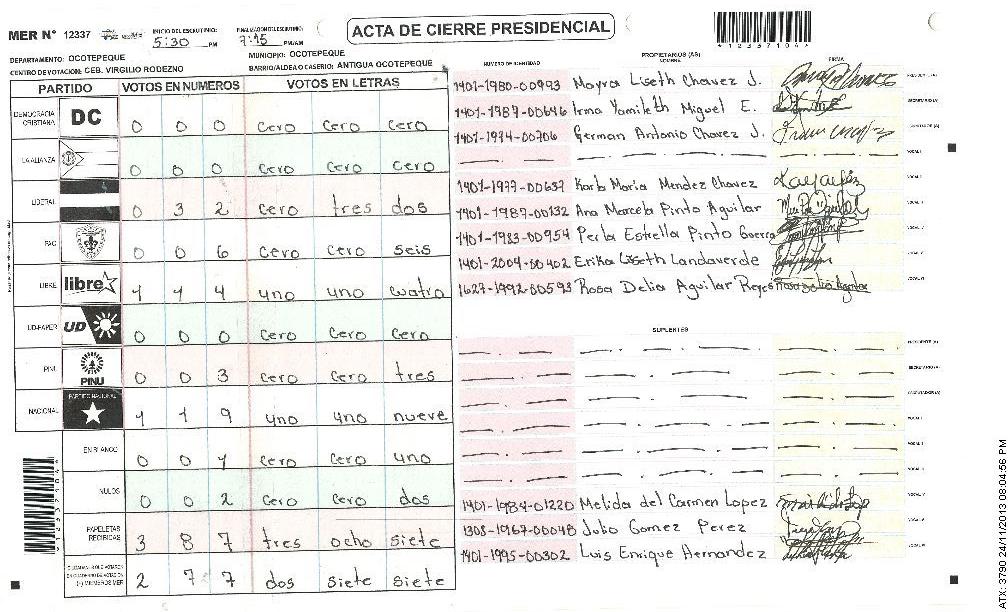 MER N° 12337
INICIO DEL ESCRUTINIO: 5:30 PM
FINALIZACION ESCRUTINIO: 7:45 PM/AM
ACTA DE CIERRE PRESIDENCIAL
*12337104*
DEPARTAMENTO: OCOTEPEQUE
MUNICIPIO: OCOTEPEQUE
CENTRO DE VOTACION: CEB. VIRGILIO RODEZNO
BARRIO/ALDEA O CASERIO: ANTIGUA OCOTEPEQUE
PARTIDO VOTOS EN NUMEROS VOTOS EN LETRAS
DEMOCRACIA CRISTIANA DC 0 0 0 cero cero cero
LA ALIANZA 0 0 0 cero cero cero
LIBERAL 0 3 2 cero tres dos
PAC 0 0 6 cero cero seis
LIBRE libre 1 1 4 uno uno cuatro
UD-FAPER UD 0 0 0 cero cero cero
PINU PINU 0 0 3 cero cero tres
NACIONAL PARTIDO NACIONAL 1 1 9 uno uno nueve
EN BLANCO 0 0 1 cero cero uno
NULOS 0 0 2 cero cero dos
PAPELETAS RECIBIDAS 3 8 7 tres ocho siete
CIUDADANOS QUE VOTARON EN CUADERNO DE VOTACION (+) MIEMBROS MER 2 7 7 dos siete siete
PROPIETARIOS (AS)
NUMERO DE IDENTIDAD NOMBRE FIRMA
1401-1980-00993 Mayra Liseth Chavez J. PRESIDENTE (A)
1401-1987-00646 Irma Yamileth Miguel E. SECRETARIO (A)
1401-1974-00706 German Antonio Chavez J. ESCRUTADOR (A)
VOCAL I
1401-1977-00637 Karla Maria Mendez Chavez
1401-1987-00132 Ana Marcela Pinto Aguilar
1401-1983-00954 Perla Estrella Pinto Guerra
1401-2004-00402 Erika Liseth Landaverde
1627-1992-00593 Rosa Delia Aguilar Reyes
SUPLENTES
PRESIDENTE (A)
SECRETARIO (A)
ESCRUTADOR (A)
VOCAL I
VOCAL II
VOCAL III
1401-1984-01220 Melida del Carmen Lopez
1308-1967-00048 Julio Gomez Perez
1401-1995-00302 Luis Enrique Hernandez
ATX: 3790 24/11/2013 08:04:56 PM